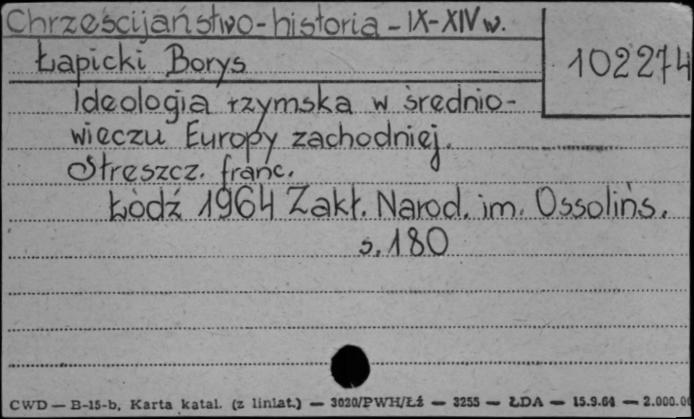 Chrześcijaństwo - historia - IX-XIV w.
102274
Łapicki Borys
Ideologia rzymska w średnio-
wieczu Europy zachodniej.
Streszcz. franc.
Łódź 1964 Zakł. Narod. im. Ossolińs.
s. 180
CWD — B-15-b, Karta katal. (z liniat.) — 3020/PWH/Łź — 3255 — ŁDA — 15.9.64 — 2.000.00